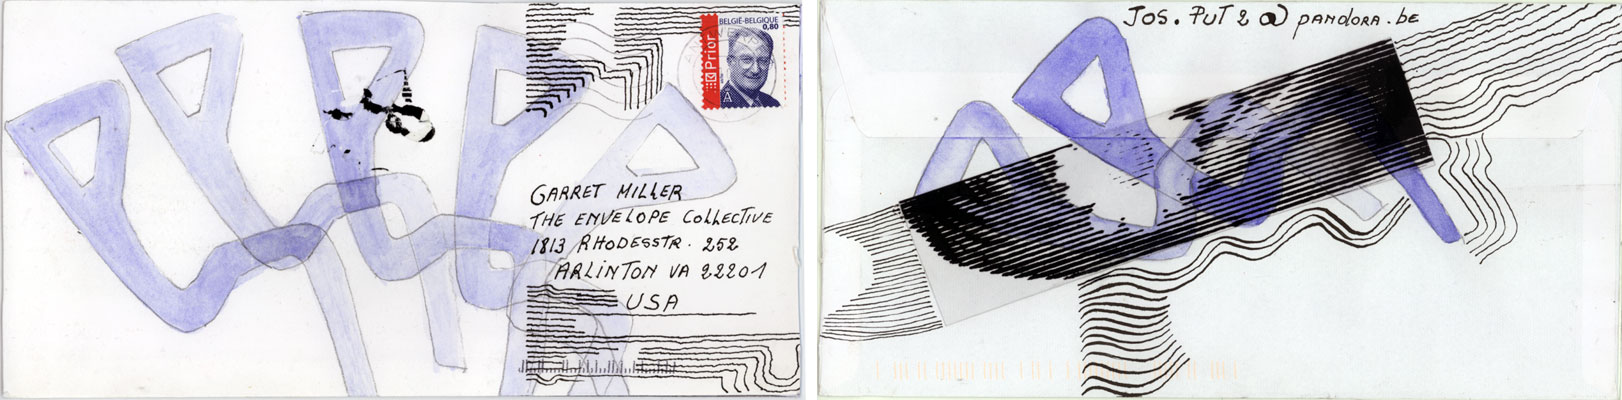 BELGIË-BELGIQUE
0,80
Prior
A
GARRET MILLER
THE ENVELOPE COLLECTIVE
1813 RHODESSTR. 252
ARLINTON VA 22201
USA
JOS. PUT 2 @ PANDORA.BE